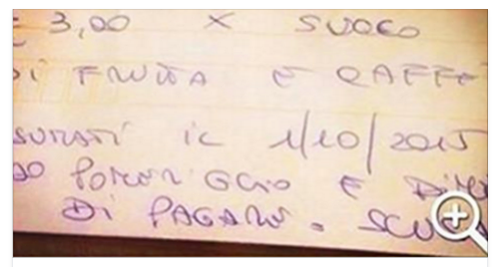 € 3,00 X SUOCO
DI FRUTTA E CAFFE
SUMATI IL 1/10/2015
POMERIGGIO E
DI PAGARE. SCU